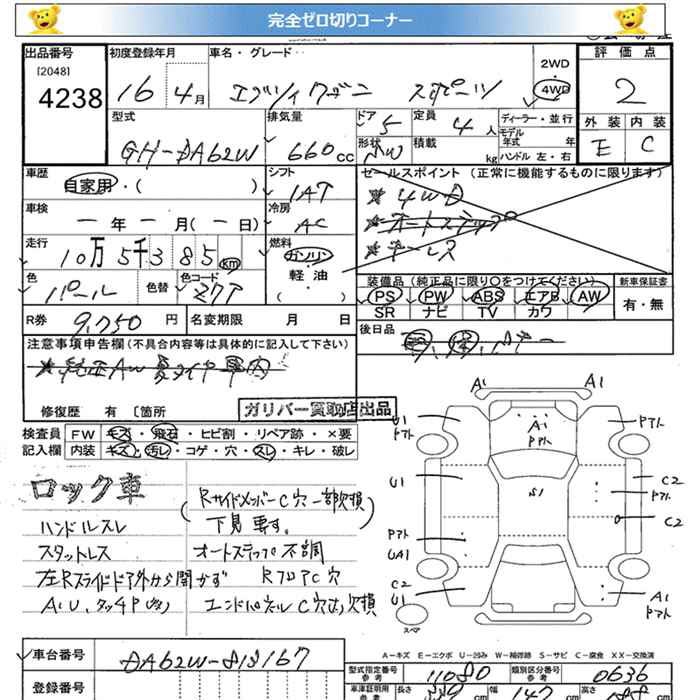 完全ゼロ切りコーナー
出品番号 初度登録年月 車名・グレード 評価点
[2048] 2WD
4238 16年 4月 エブリィワゴン スポーツ 4WD 2
型式 排気量 ドア 定員 ディーラー・並行 外装 内装
GH-DA62W 660cc 5 4人 モデル年式 年 E C
形状 積載 kg ハンドル 左・右
車歴 シフト セールスポイント(正常に機能するものに限ります)
自家用・( ) 1AT ★4WD
車検 冷房 ★オートステップ
ー年ー月(ー日) AC ★キーレス
走行 燃料
10万5千385km ガソリン 装備品(純正品に限り○をつけてください) 新車保証書
色 色替 色コード 軽・油 PS PW ABS エアB AW 有・無
パール Z7T ( ) SR ナビ TV カワ
R券 9,750円 名変期限 月 日 後日品
注意事項申告欄(不具合内容等は具体的に記入して下さい)
修復歴 有 〔箇所 ガリバー買取店出品
検査員 FW キズ・飛石・ヒビ割・リペア跡・×要
記入欄 内装 キズ・汚レ・コゲ・穴・スレ・キレ・破レ
ロック車 (Rサイドメンバー C穴 一部欠損
ハンドルスレ 下見要す。)
スタットレス オートステップ不調
左Rスライドドア外から開かず RフロアC穴
エンドパネルC穴有り欠損
A1 A1
U1 Pアト A1 Pアト Pアト
U1 S1 C2
Pアト
C2
Pアト
UA1
C2 A1
U1 Pアト
スペア
A-キズ E-エクボ U-凹み W-補修跡 S-サビ C-腐食 XX-交換済
車台番号 DA62W-813167 型式指定番号 参考 11080 類別区分番号 参考 0636
登録番号 車検証明用 参考 長さ cm 幅 147 cm 高さ cm